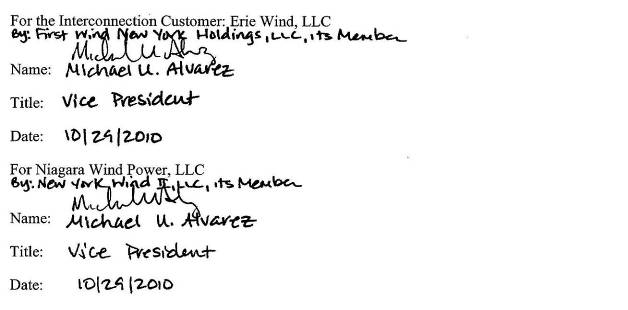 For the Interconnection Customer: Erie Wind, LLC
By: First Wind New York Holdings, LLC, its Member
Name: Michael U. Alvarez
Title: Vice President
Date: 10/29/2010
For Niagara Wind Power, LLC
By: New York Wind II, LLC, its Member
Name: Michael U. Alvarez
Title: Vice President
Date: 10/29/2010